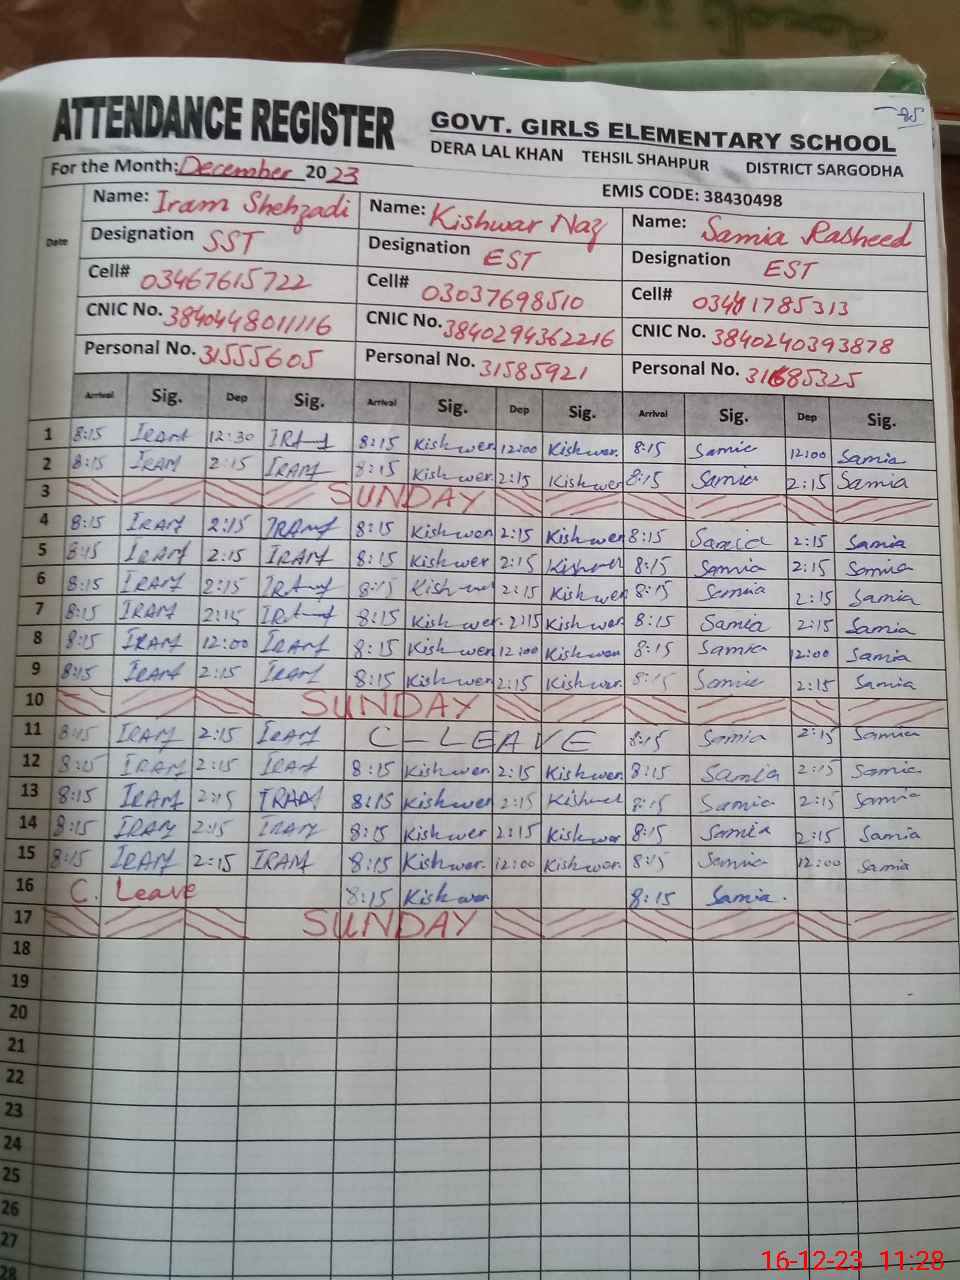 85
ATTENDANCE REGISTER
GOVT. GIRLS ELEMENTARY SCHOOL
DERA LAL KHAN TEHSIL SHAHPUR DISTRICT SARGODHA
For the Month: December 2023
EMIS CODE: 38430498
Date
Name: Iram Shehzadi Name: Kishwar Naz Name: Samia Rasheed
Designation SST Designation EST Designation EST
Cell# 03467615722 Cell# 03037698510 Cell# 03481785313
CNIC No. 3840448011116 CNIC No. 3840294362216 CNIC No. 3840240393878
Personal No. 31555605 Personal No. 31585921 Personal No. 31685325
Arrival Sig. Dep Sig. Arrival Sig. Dep Sig. Arrival Sig. Dep Sig.
1 8:15 IRAM 12:30 IRAM 8:15 Kishwer 12:00 Kishwer. 8:15 Samia 12:00 Samia
2 8:15 IRAM 2:15 IRAM 8:15 Kishwer. 2:15 Kishwer 8:15 Samia 2:15 Samia
3 SUNDAY
4 8:15 IRAM 2:15 IRAM 8:15 Kishwer 2:15 Kishwer 8:15 Samia 2:15 Samia
5 8:15 IRAM 2:15 IRAM 8:15 Kishwer 2:15 Kishwer 8:15 Samia 2:15 Samia
6 8:15 IRAM 2:15 IRAM 8:15 Kishwer 2:15 Kishwer 8:15 Samia 2:15 Samia
7 8:15 IRAM 2:15 IRAM 8:15 Kishwer. 2:15 Kishwer 8:15 Samia 2:15 Samia
8 8:15 IRAM 12:00 IRAM 8:15 Kishwer 12:00 Kishwer 8:15 Samia 12:00 Samia
9 8:15 IRAM 2:15 IRAM 8:15 Kishwer 2:15 Kishwer. 8:15 Samia 2:15 Samia
10 SUNDAY
11 8:15 IRAM 2:15 IRAM C-LEAVE 8:15 Samia 2:15 Samia
12 8:15 IRAM 2:15 IRAM 8:15 Kishwer 2:15 Kishwer. 8:15 Samia 2:15 Samia
13 8:15 IRAM 2:15 IRAM 8:15 Kishwer 2:15 Kishwer 8:15 Samia 2:15 Samia
14 8:15 IRAM 2:15 IRAM 8:15 Kishwer 2:15 Kishwer 8:15 Samia 2:15 Samia
15 8:15 IRAM 2:15 IRAM 8:15 Kishwer. 12:00 Kishwer. 8:15 Samia 12:00 Samia
16 C. Leave 8:15 Kishwer 8:15 Samia.
17 SUNDAY
18
19
20
21
22
23
24
25
26
27
28
16-12-23 11:28